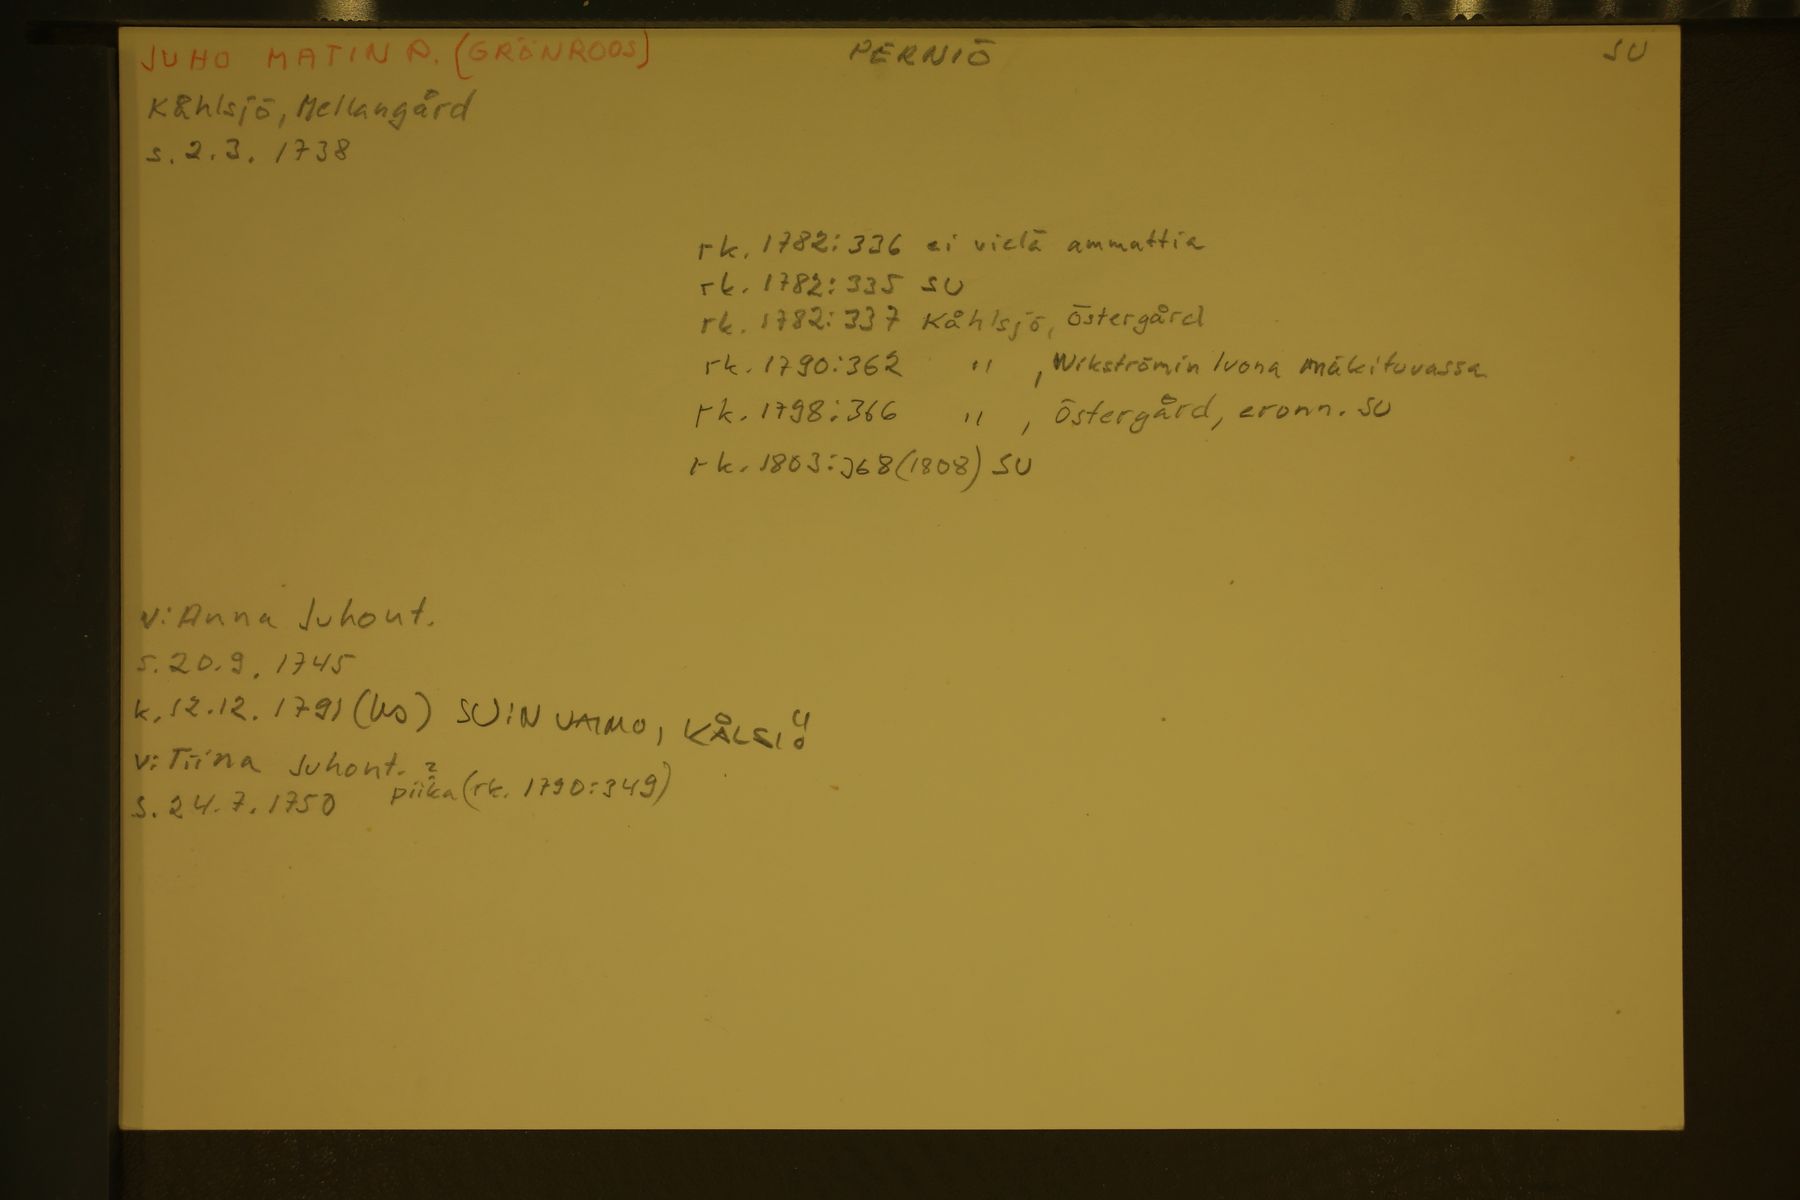 JUHO MATIN P. (GRÖNROOS) PERNIÖ SU
Kåhlsjö, Mellangård
s. 2.3. 1738
rk. 1782:336 ei vielä ammattia
rk. 1782:335 SU
rk. 1782:337 Kåhlsjö, Östergård
rk. 1790:362 " , Wikströmin luona mäkituvassa
rk. 1798:366 " , Östergård, eronn. SU
rk. 1803:368 (1808) SU
v: Anna Juhont.
s. 20.9. 1745
k. 12.12. 1791 (ks) SU:N VAIMO, KÅLSIÖ
v: Tiina Juhont. ?
s. 24.7. 1750 piika (rk. 1790:349)